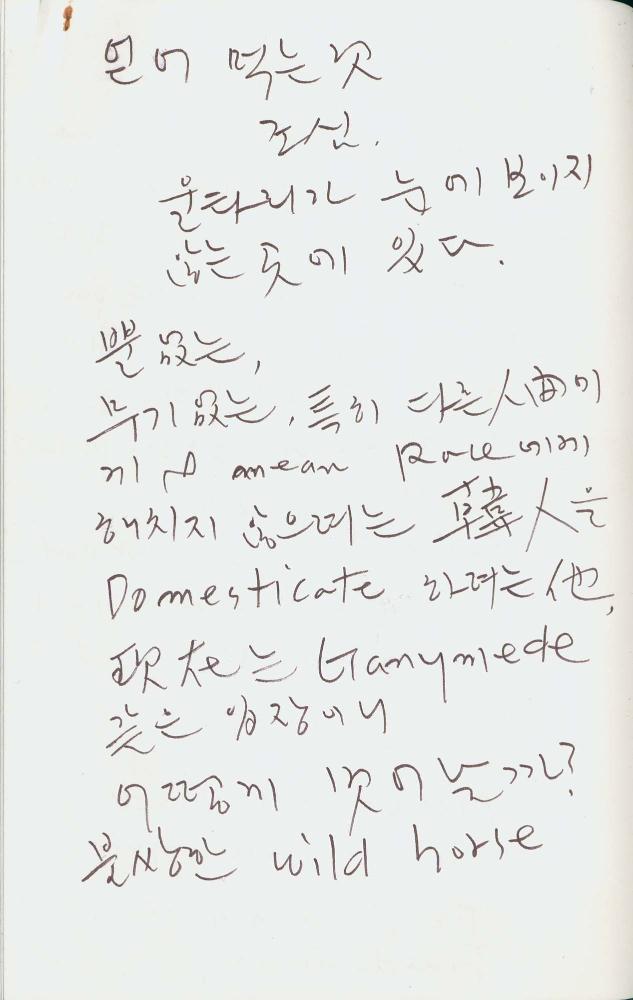 얻어 먹는 것
조심.
울타리가 눈에 보이지
않는 곳에 있다.
뿔 없는,
무기 없는, 특히 다른 人面에
게 I mean Race에게
해치지 않으려는 韓人은
Domesticate 하려는 他,
現在는 Ganymede
같은 입장이니
어떻게 벗어날까?
불쌍한 wild horse